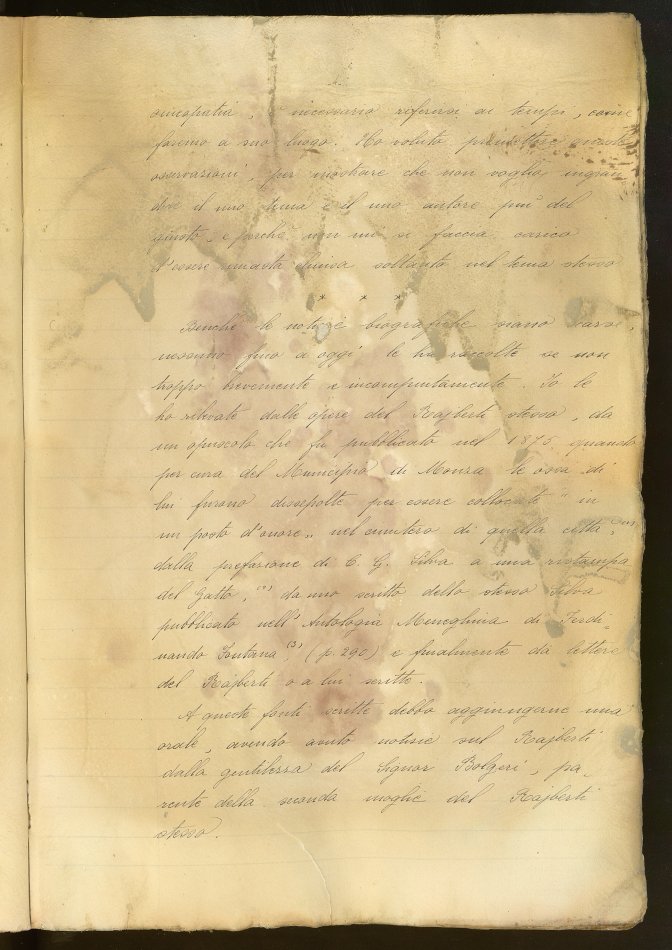 omeopatia, è necessario riferirsi ai tempi, come
faremo a suo luogo. Ho voluto premettere queste
osservazioni, per mostrare che non voglio ingran
dire il mio tema e il mio autore più del
giusto, e perchè non mi si faccia carico
d'essere rimasta chiusa soltanto nel tema stesso
* * *
Benchè le notizie biografiche siano scarse,
nessuno fino a oggi le ha raccolte se non
troppo brevemente e incompiutamente. Io le
ho rilevate dalle opere del Rajberti stesso, da
un opuscolo che fu pubblicato nel 1875 quando
per cura del Municipio di Monza le ossa di
lui furono dissepolte per essere collocate "in
un posto d'onore" nel cimitero di quella città,
dalla prefazione di C. G. Silva a una ristampa
del Gatto, (2) da uno scritto dello stesso Silva
pubblicato nell'Antologia Meneghina di Ferdi-
nando Fontana, (3) (p. 290) e finalmente da lettere
del Rajberti o a lui scritte.
A queste fonti scritte debbo aggiungerne una
orale, avendo avuto notizie sul Rajberti
dalla gentilezza del Signor Bolgeri, pa-
rente della seconda moglie del Rajberti
stesso.